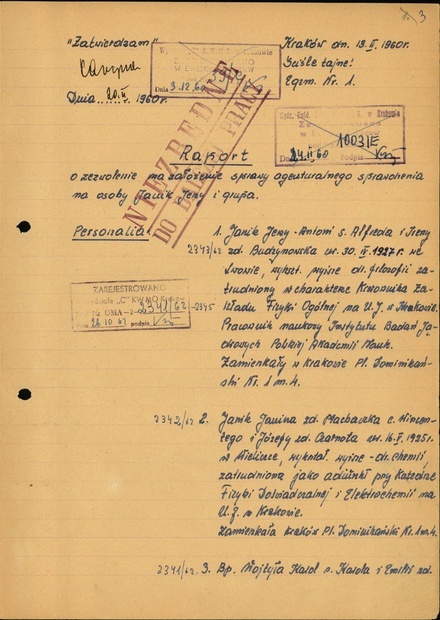 3
"Zatwierdzam"
Kraków dn. 13.II.1960r.
Ściśle tajne!
Egzm. Nr. 1.
Dnia 20.II 1960r.
Dnia 3.12.60
NIEZBĘDNE
DO DALSZEJ PRACY
w Krakowie
10031E
Dnia 24.II.60 Podpis
Raport
o zezwolenie na założenie sprawy agenturalnego sprawdzenia
na osoby Janik Jerzy i grupa.
Personalia:
1. Janik Jerzy-Antoni s. Alfreda i Ireny
2343/62 zd. Budzynowska ur. 30.II.1927r. we
Lwowie, wykszt. wyższe dr. filozofii za-
trudniony w charakterze Kierownika Za-
kładu Fizyki Ogólnej na U.J. w Krakowie.
Pracownik naukowy Instytutu Badań Ją-
drowych Polskiej Akademii Nauk.
Zamieszkały w Krakowie Pl. Dominikań-
ski Nr. 1 m. 4.
ZAREJESTROWANO
"C" KWMO
2341/62-2345
26 10 62 podpis
2342/62 2. Janik Janina zd. c. Wincen-
tego i Józefy zd. Czarnota ur. 16.V.1925r.
w Wieliczce, wykształ. wyższe - dr. chemii,
zatrudniona jako adiunkt przy Katedrze
Fizyki Doświadczalnej i Elektrochemii na
U.J. w Krakowie.
Zamieszkała Kraków Pl. Dominikański Nr. 1 m. 4.
2341/62. 3. Bp. Wojtyła Karol s. Karola i Emilii zd.